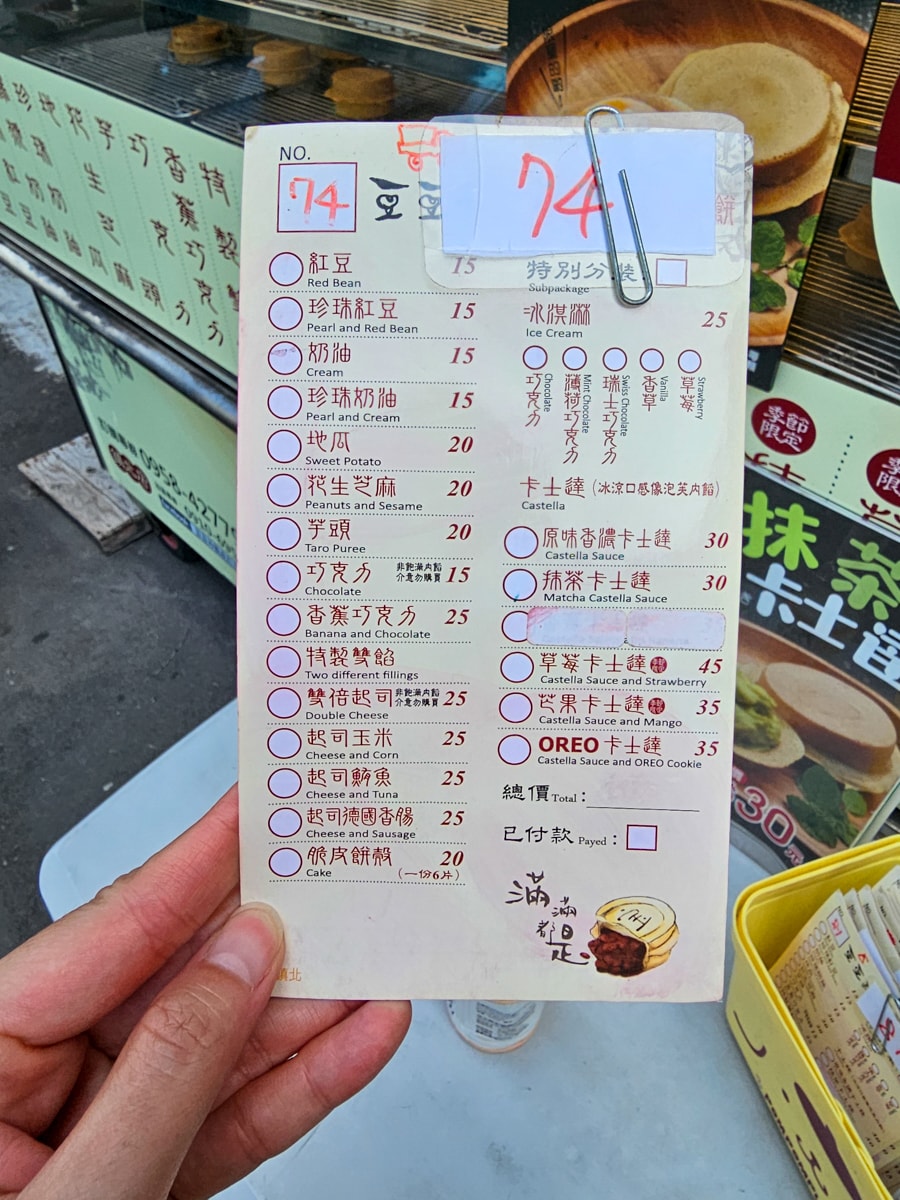 NO.
74
豆豆
74
紅豆 15
Red Bean
珍珠紅豆 15
Pearl and Red Bean
奶油 15
Cream
珍珠奶油 15
Pearl and Cream
地瓜 20
Sweet Potato
花生芝麻 20
Peanuts and Sesame
芋頭 20
Taro Puree
巧克力 非飽滿內餡 介意勿購買 15
Chocolate
香蕉巧克力 25
Banana and Chocolate
特製雙餡
Two different fillings
雙倍起司 非飽滿內餡 介意勿購買 25
Double Cheese
起司玉米 25
Cheese and Corn
起司鮪魚 25
Cheese and Tuna
起司德國香腸 25
Cheese and Sausage
脆皮餅殼 20
Cake (一份6片)
特別分裝
Subpackage
冰淇淋 25
Ice Cream
巧克力 Chocolate
薄荷巧克力 Mint Chocolate
瑞士巧克力 Swiss Chocolate
香草 Vanilla
草莓 Strawberry
卡士達(冰涼口感像泡芙內餡)
Castella
原味香濃卡士達 30
Castella Sauce
抹茶卡士達 30
Matcha Castella Sauce
草莓卡士達 45
Castella Sauce and Strawberry
芒果卡士達 35
Castella Sauce and Mango
OREO卡士達 35
Castella Sauce and OREO Cookie
總價 Total:
已付款 Payed:
滿滿都是
季節限定
抹茶
卡士達
30元